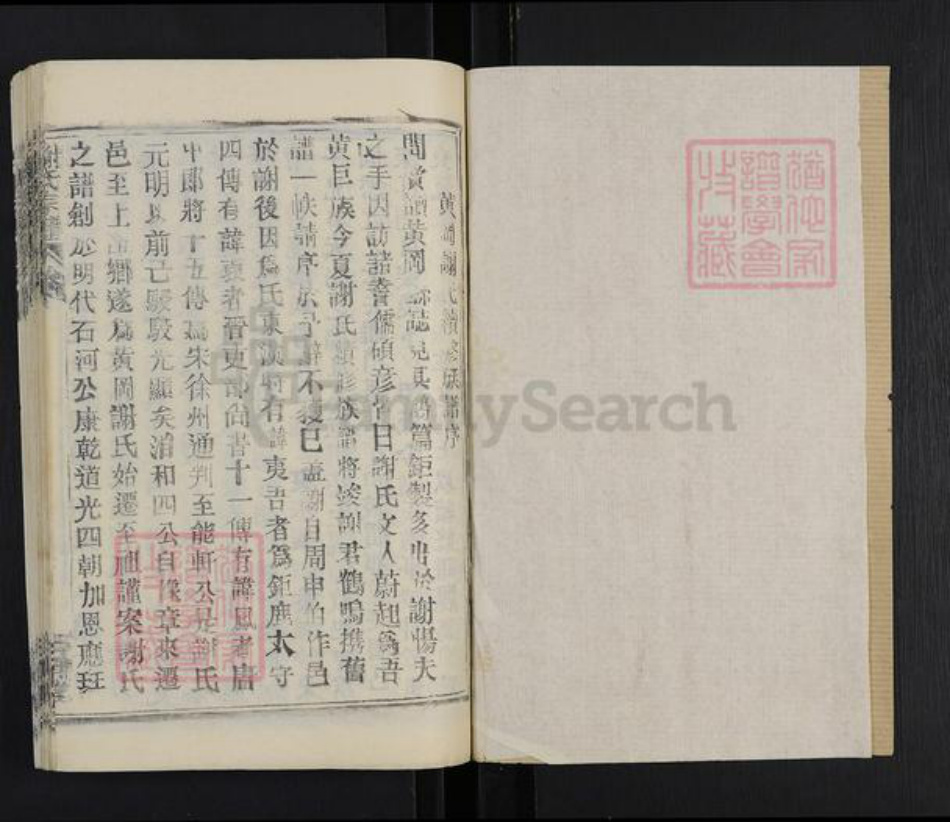 黃岡謝氏續修族譜序
間嘗讀黃岡縣誌見其鴻篇鉅製多出於謝惕夫
之手因訪諸耆儒碩彥皆曰謝氏文人蔚起為吾
黃巨族今夏謝氏續修族譜將竣謝君鶴鳴携舊
譜一帙請序於予辭不獲已蓋謝自周申伯作邑
於謝後因為氏東漢時有諱夷吾者為鉅鹿太守
四傳有諱裒者晉吏部尚書十一傳有諱風者唐
中郎將十五傳為宋徐州通判至能軒公是謝氏
元明以前已駸駸光顯矣洎和四公自豫章來遷
邑至上 鄉遂為黃岡謝氏始遷至祖謹案謝氏
之譜創於明代石河公康乾道光四朝加恩應珏
謝氏宗譜
猶他家譜學會收藏
FamilySearch